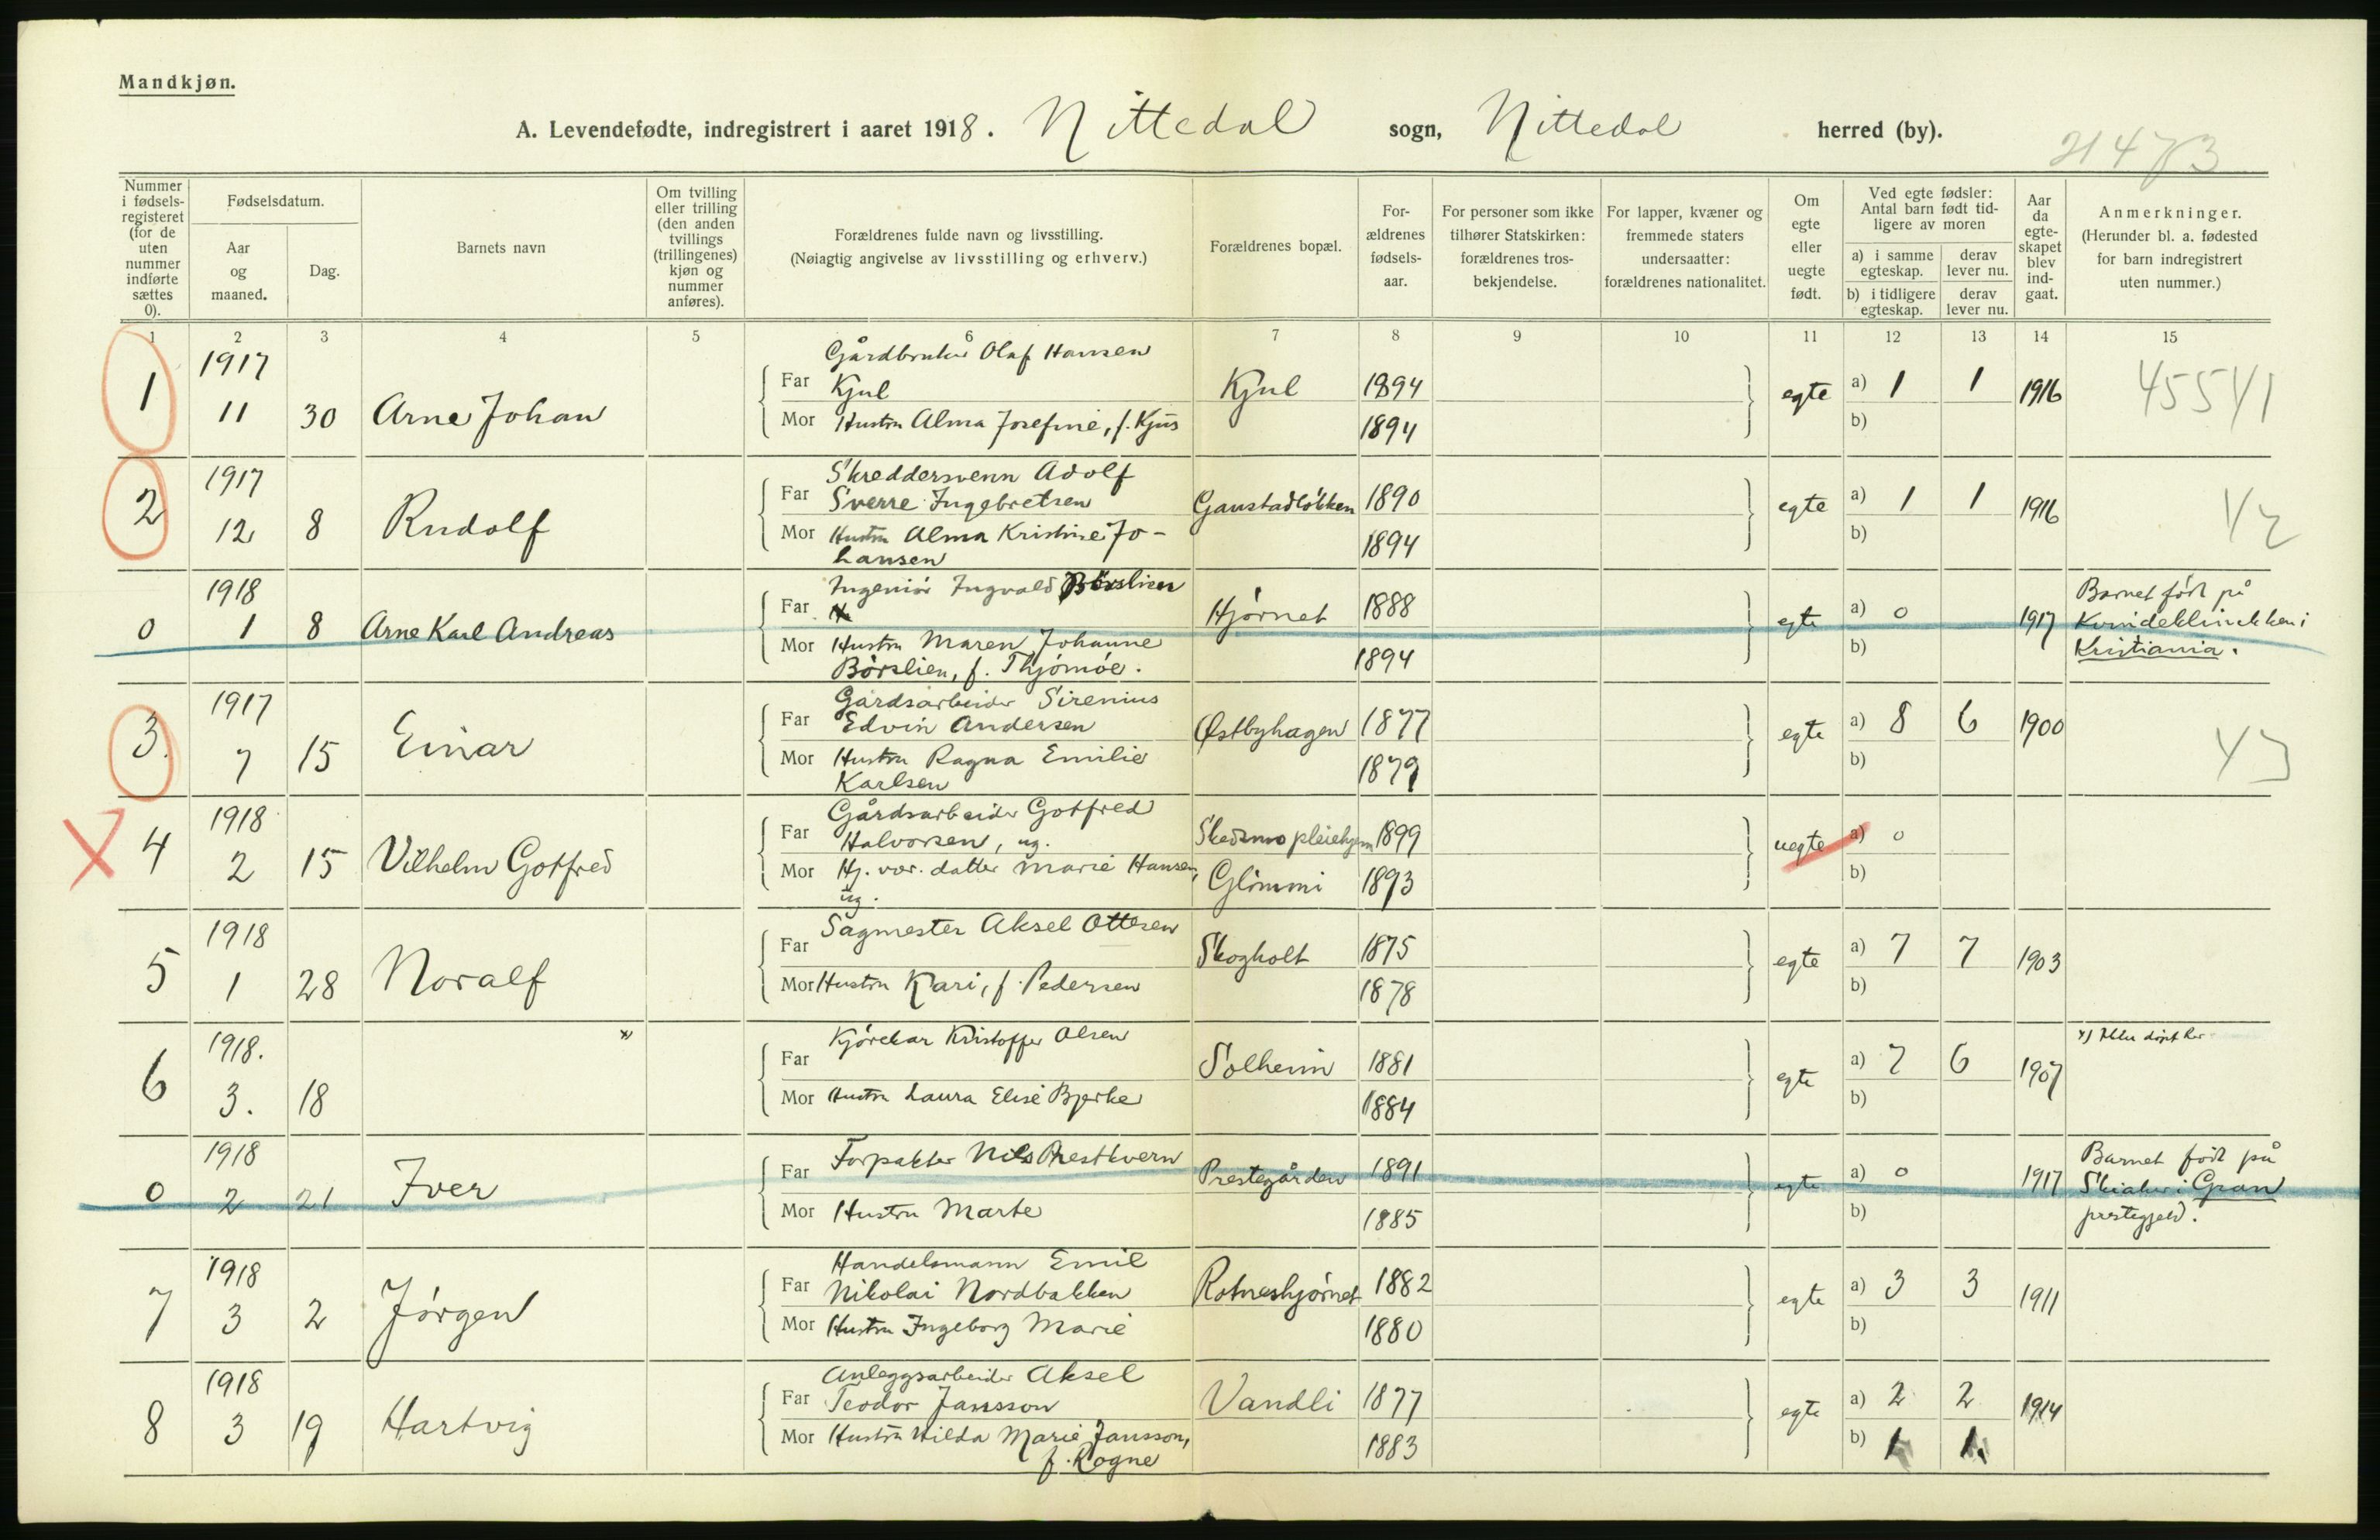 Mandkjøn.
A. Levendefødte, indregistrert i aaret 1918. Nittedal sogn, Nittedal herred (by).
21473
Nummer i fødselsregisteret (for de uten nummer indførte sættes 0).
Fødselsdatum.
Aar og maaned.
Dag.
Barnets navn
Om tvilling eller trilling (den anden tvillings (trillingenes) kjøn og nummer anføres).
Forældrenes fulde navn og livsstilling.
(Nøiagtig angivelse av livsstilling og erhverv.)
Forældrenes bopæl.
For-
ældrenes
fødsels-
aar.
For personer som ikke
tilhører Statskirken:
forældrenes tros-
bekjendelse.
For lapper, kvæner og
fremmede staters
undersaatter:
forældrenes nationalitet.
Om
egte
eller
uegte
født.
Ved egte fødsler:
Antal barn født tid-
ligere av moren
a) i samme egteskap.
derav lever nu.
b) i tidligere egteskap.
derav lever nu.
Aar
da
egte-
skapet
blev
ind-
gaat.
Anmerkninger.
(Herunder bl. a. fødested
for barn indregistrert
uten nummer.)
1 2 3 4 5 6 7 8 9 10 11 12 13 14 15
1917
Gårdbruker Olaf Hansen
1 11 30 Arne Johan Far Kjul Kjul 1894 egte a) 1 1 1916
Mor Hustru Alma Josefine, f. Kjus 1894 b)
1917
Skreddersvenn Adolf
2 12 8 Rudolf Far Sverre Ingebretsen Ganstadløkken 1890 egte a) 1 1 1916
Mor Hustru Alma Kristine Jo-
hansen 1894 b)
1918
Ingeniør Ingvald Børslien
0 1 8 Arne Karl Andreas Far Hjørnet 1888 egte a) 0 1917
Mor Hustru Maren Johanne
Børslien, f. Thjømøe. 1894 b)
Barnet født på
Kvindeklinikken i
Kristiania.
1917
Gårdsarbeider Sirenius
3. 7 15 Einar Far Edvin Andersen Østbyhagen 1877 egte a) 8 6 1900
Mor Hustru Ragna Emilie
Karlsen 1879 b)
1918
Gårdsarbeider Gotfred
4 2 15 Vilhelm Gotfred Far Halvorsen, ug. Skedsmo pleiehjem 1899 uegte a) 0
Mor Hj. vær. datter Marie Hansen,
ug. Glimmi 1893 b)
1918
Sagmester Aksel Ottesen
5 1 28 Noralf Far Skogholt 1875 egte a) 7 7 1903
Mor Hustru Kari, f. Pedersen 1878 b)
1918.
Kjørekar Kristoffer Olsen
6 3. 18 x) Far Solheim 1881 egte a) 7 6 1907
Mor Hustru Laura Elise Bjerke 1884 b)
x) Ikke døpt her
1918
Forpakter Nils Prestkvern
0 2 21 Iver Far Prestegården 1891 egte a) 0 1917
Mor Hustru Marte 1885 b)
Barnet født på
Skiaker i Gran
prestegjeld.
1918
Handelsmann Emil
7 3 2 Jørgen Far Nikolai Nordbakken Rotneshjørnet 1882 egte a) 3 3 1911
Mor Hustru Ingeborg Marie 1880 b)
1918
Anleggsarbeider Aksel
8 3 19 Hartvig Far Teodor Jansson Vandli 1877 egte a) 2 2 1914
Mor Hustru Hilda Marie Jansson,
f. Rogne 1883 b) 1 1.